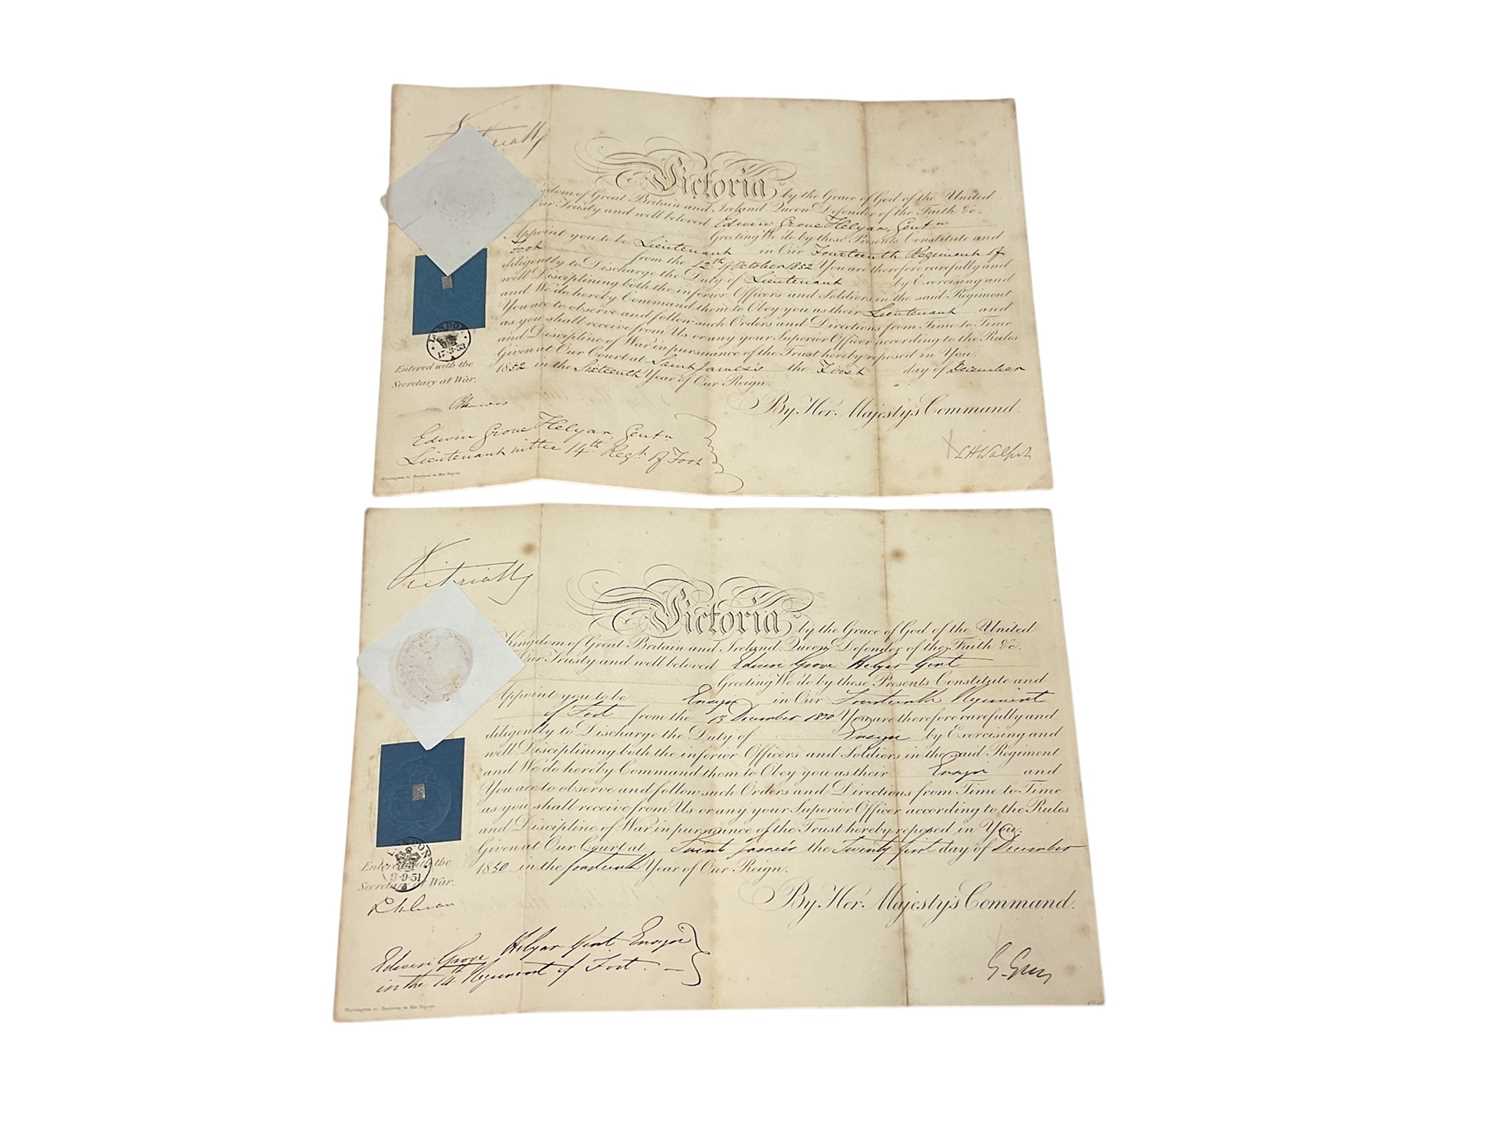 Victoria R
Victoria by the Grace of God of the United
Kingdom of Great Britain and Ireland Queen Defender of the Faith &c.
Our Trusty and well beloved Edwin Grove Helyar Gentn
Greeting We do by these Presents Constitute and
Appoint you to be Lieutenant in Our Fourteenth Regiment of
Foot from the 12th of October 1852 You are therefore carefully and
diligently to Discharge the Duty of Lieutenant by Exercising and
well Disciplining both the inferior Officers and Soldiers in the said Regiment
and We do hereby Command them to Obey you as their Lieutenant and
You are to observe and follow such Orders and Directions from Time to Time
as you shall receive from Us or any your Superior Officer according to the Rules
and Discipline of War in pursuance of the Trust hereby reposed in You
Given at Our Court at Saint James's the day of December
1852 in the Sixteenth Year of Our Reign.
By Her Majesty's Command.
LONDON
17-3-53
Entered with the
Secretary at War.
Edwin Grove Helyar Gentn
Lieutenant in the 14th Regt. of Foot
S H Walpole
Victoria R
Victoria by the Grace of God of the United
Kingdom of Great Britain and Ireland Queen Defender of the Faith &c.
Our Trusty and well beloved Edwin Grove Helyar Gent
Greeting We do by these Presents Constitute and
Appoint you to be Ensign in Our Fourteenth Regiment
of Foot from the 13 December 1850 You are therefore carefully and
diligently to Discharge the Duty of Ensign by Exercising and
well Disciplining both the inferior Officers and Soldiers in the said Regiment
and We do hereby Command them to Obey you as their Ensign and
You are to observe and follow such Orders and Directions from Time to Time
as you shall receive from Us or any your Superior Officer according to the Rules
and Discipline of War in pursuance of the Trust hereby reposed in You.
Given at Our Court at Saint James's the Twenty first day of December
1850 in the fourteenth Year of Our Reign.
By Her Majesty's Command.
LONDON
9-51
Entered with the
Secretary at War.
Edwin Grove Helyar Gent Ensign
in the 14 Regiment of Foot
G. Grey